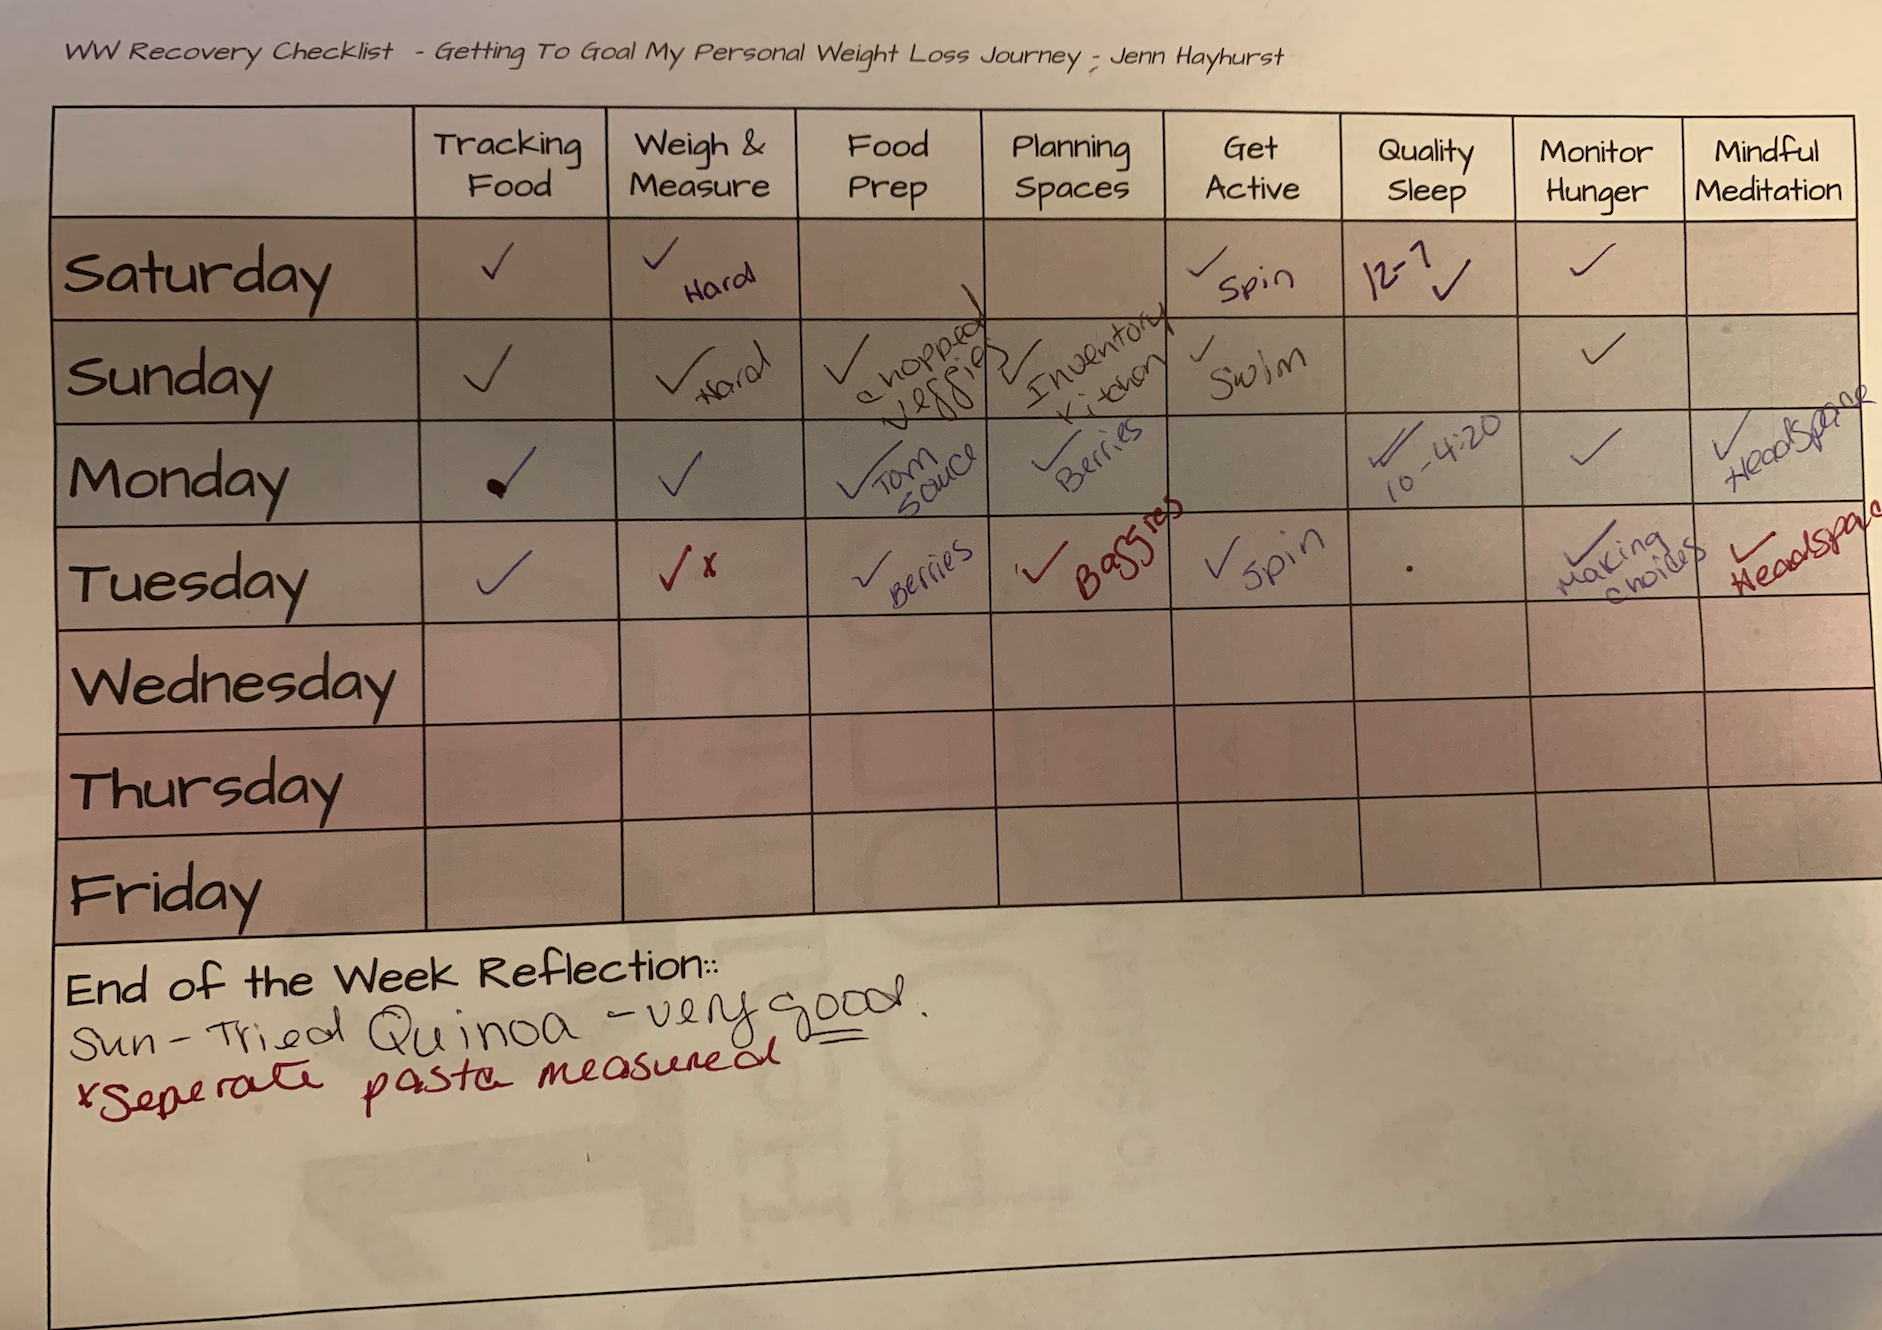 WW Recovery Checklist - Getting To Goal My Personal Weight Loss Journey - Jenn Hayhurst
Tracking Food Weigh & Measure Food Prep Planning Spaces Get Active Quality Sleep Monitor Hunger Mindful Meditation
Saturday ✓ ✓ Hard ✓ Spin 12-7 ✓ ✓
Sunday ✓ ✓ Hard ✓ chopped veggies ✓ Inventory Kitchen ✓ Swim ✓
Monday ✓ ✓ ✓ Tom Sauce ✓ Berries ✓ 10-4:20 ✓ ✓ Headspace
Tuesday ✓ ✓ x ✓ Berries ✓ Baggies ✓ Spin . ✓ Making choices ✓ Headspace
Wednesday
Thursday
Friday
End of the Week Reflection::
Sun - Tried Quinoa - very good.
*Seperate pasta measured